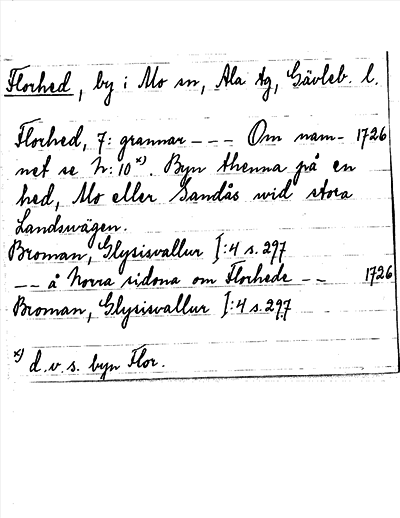 Florhed, by i Mo sn, Ala tg, Gävleb. l.
Florhed, 7: grannar --- Om nam- 1726
net se N:10 x). Byn thenna på en
hed, Mo eller Sandås wid stora
Landswägen.
Broman, Glysisvallur I:4 s.297
-- å Norra sidona om Florhede -- 1726
Broman, Glysisvallur I:4 s.297
x) d.v.s. byn Flor.